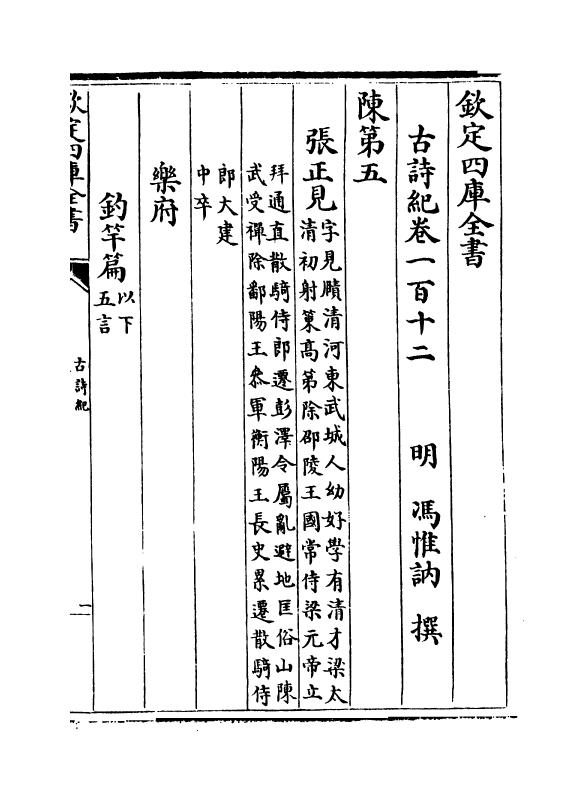 欽定四庫全書
古詩紀卷一百十二 明 馮惟訥 撰
陳第五
張正見
字見賾清河東武城人幼好學有清才梁太
清初射策高第除邵陵王國常侍梁元帝立
拜通直散騎侍郎遷彭澤令屬亂避地匡俗山陳
武受禪除鄱陽王叅軍衡陽王長史累遷散騎侍
郎大建
中卒
樂府
釣竿篇
以下
五言
欽定四庫全書
古詩紀
一